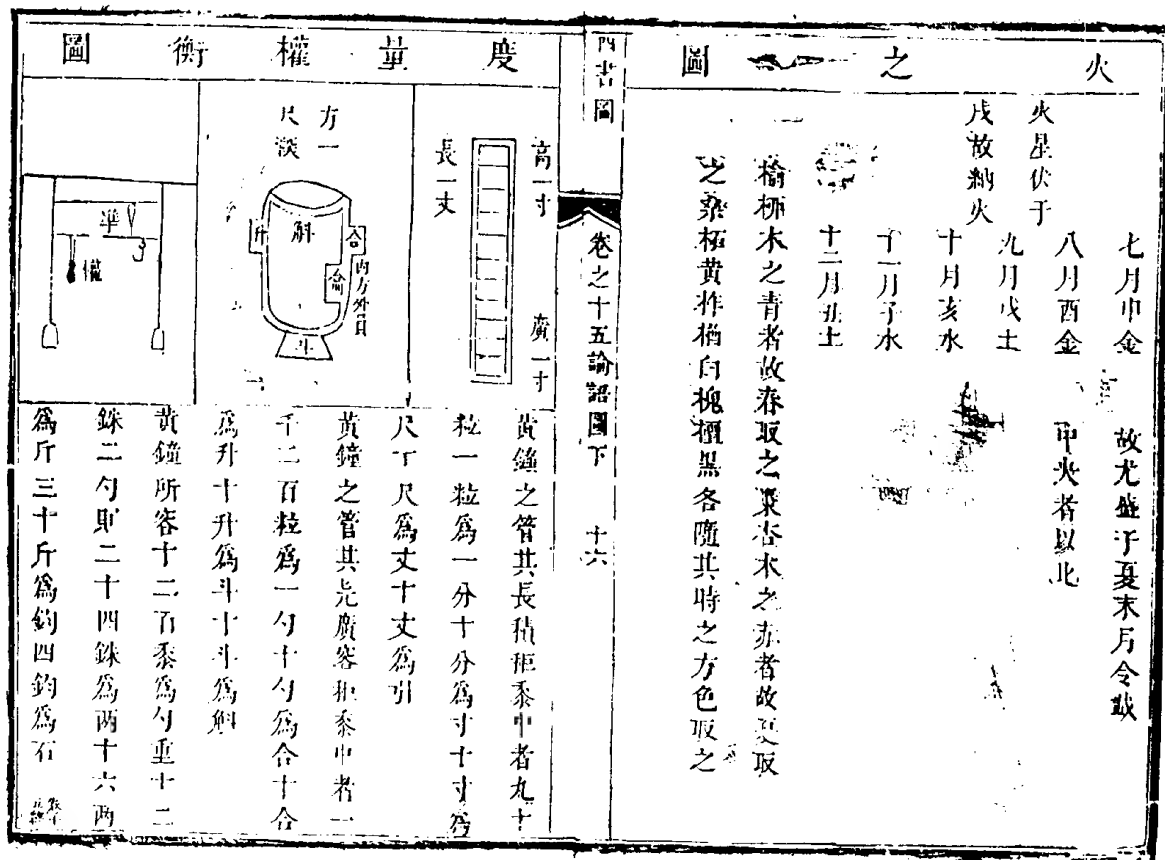 火之圖
七月申金
八月酉金
九月戌土
十月亥水
十一月子水
十二月丑土
故尤盛于夏末月令載
中央者以此
火星伏于
戌故納火
榆柳木之青者故春取之棗杏木之赤者故夏取
之桑柘黄柞楢白槐檀黑各隨其時之方色取之
四書圖
卷之十五論語圖下
十六
度量權衡圖
高一寸
廣一寸
長一丈
方一
尺深
斛
升
合
龠
内方外圓
斗
準
權
黄鐘之管其長積秬黍中者九十
粒一粒爲一分十分爲寸十寸爲
尺十尺爲丈十丈爲引
黄鐘之管其所廣容秬黍中者一
千二百粒爲一勺十勺爲合十合
爲升十升爲斗十斗爲斛
黄鐘所容十二百黍爲勺重十二
銖二勺則二十四銖爲两十六两
爲斤三十斤爲鈞四鈞爲石